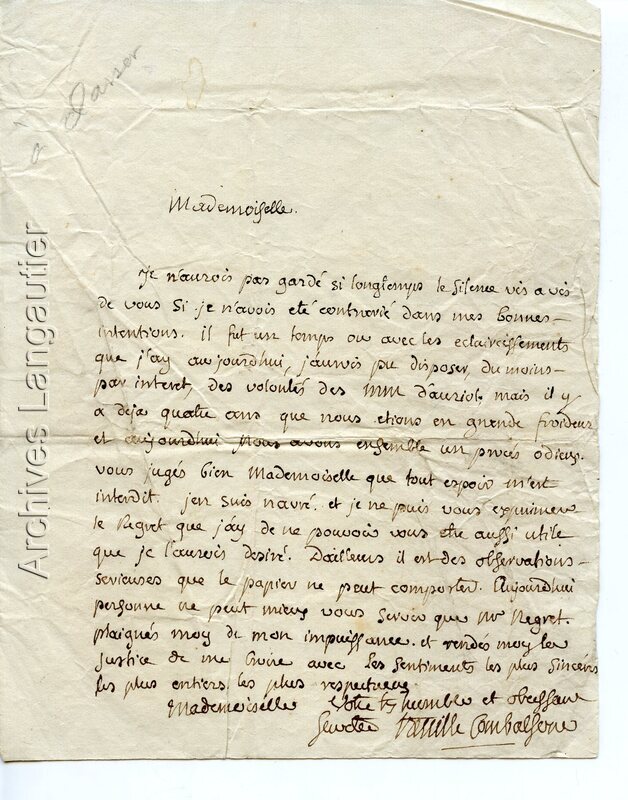 à Classer
Mademoiselle.
Je n'aurois pas gardé si longtemps le silence vis a vis
de vous si je n'avois eté contrarié dans mes bonnes
intentions. il fut un temps ou avec les eclaircissements
que j'ay aujourdhui, j'aurois pu disposer, du moins
par interet, des volontés des MM dauriol, mais il y
a déja quatre ans que nous etions en grande froideur
et aujourdhui nous avons ensemble un procès odieux.
vous jugés bien Mademoiselle que tout espoir m'est
interdit. j'en suis navré. et je ne puis vous exprimer
le Regret que j'ay de ne pouvoir vous etre aussi utile
que je l'aurois desiré. D'ailleurs il est des observations
serieuses que le papier ne peut comporter. Aujourdhui
personne ne peut mieux vous servir que Mr Negret.
plaignés moy de mon impuissance. et rendés moy la
justice de me croire avec les sentiments les plus sincères
les plus entiers, les plus respectueux
Mademoiselle Votre ts humble et obeissant
Combalsone
Archives Langautier